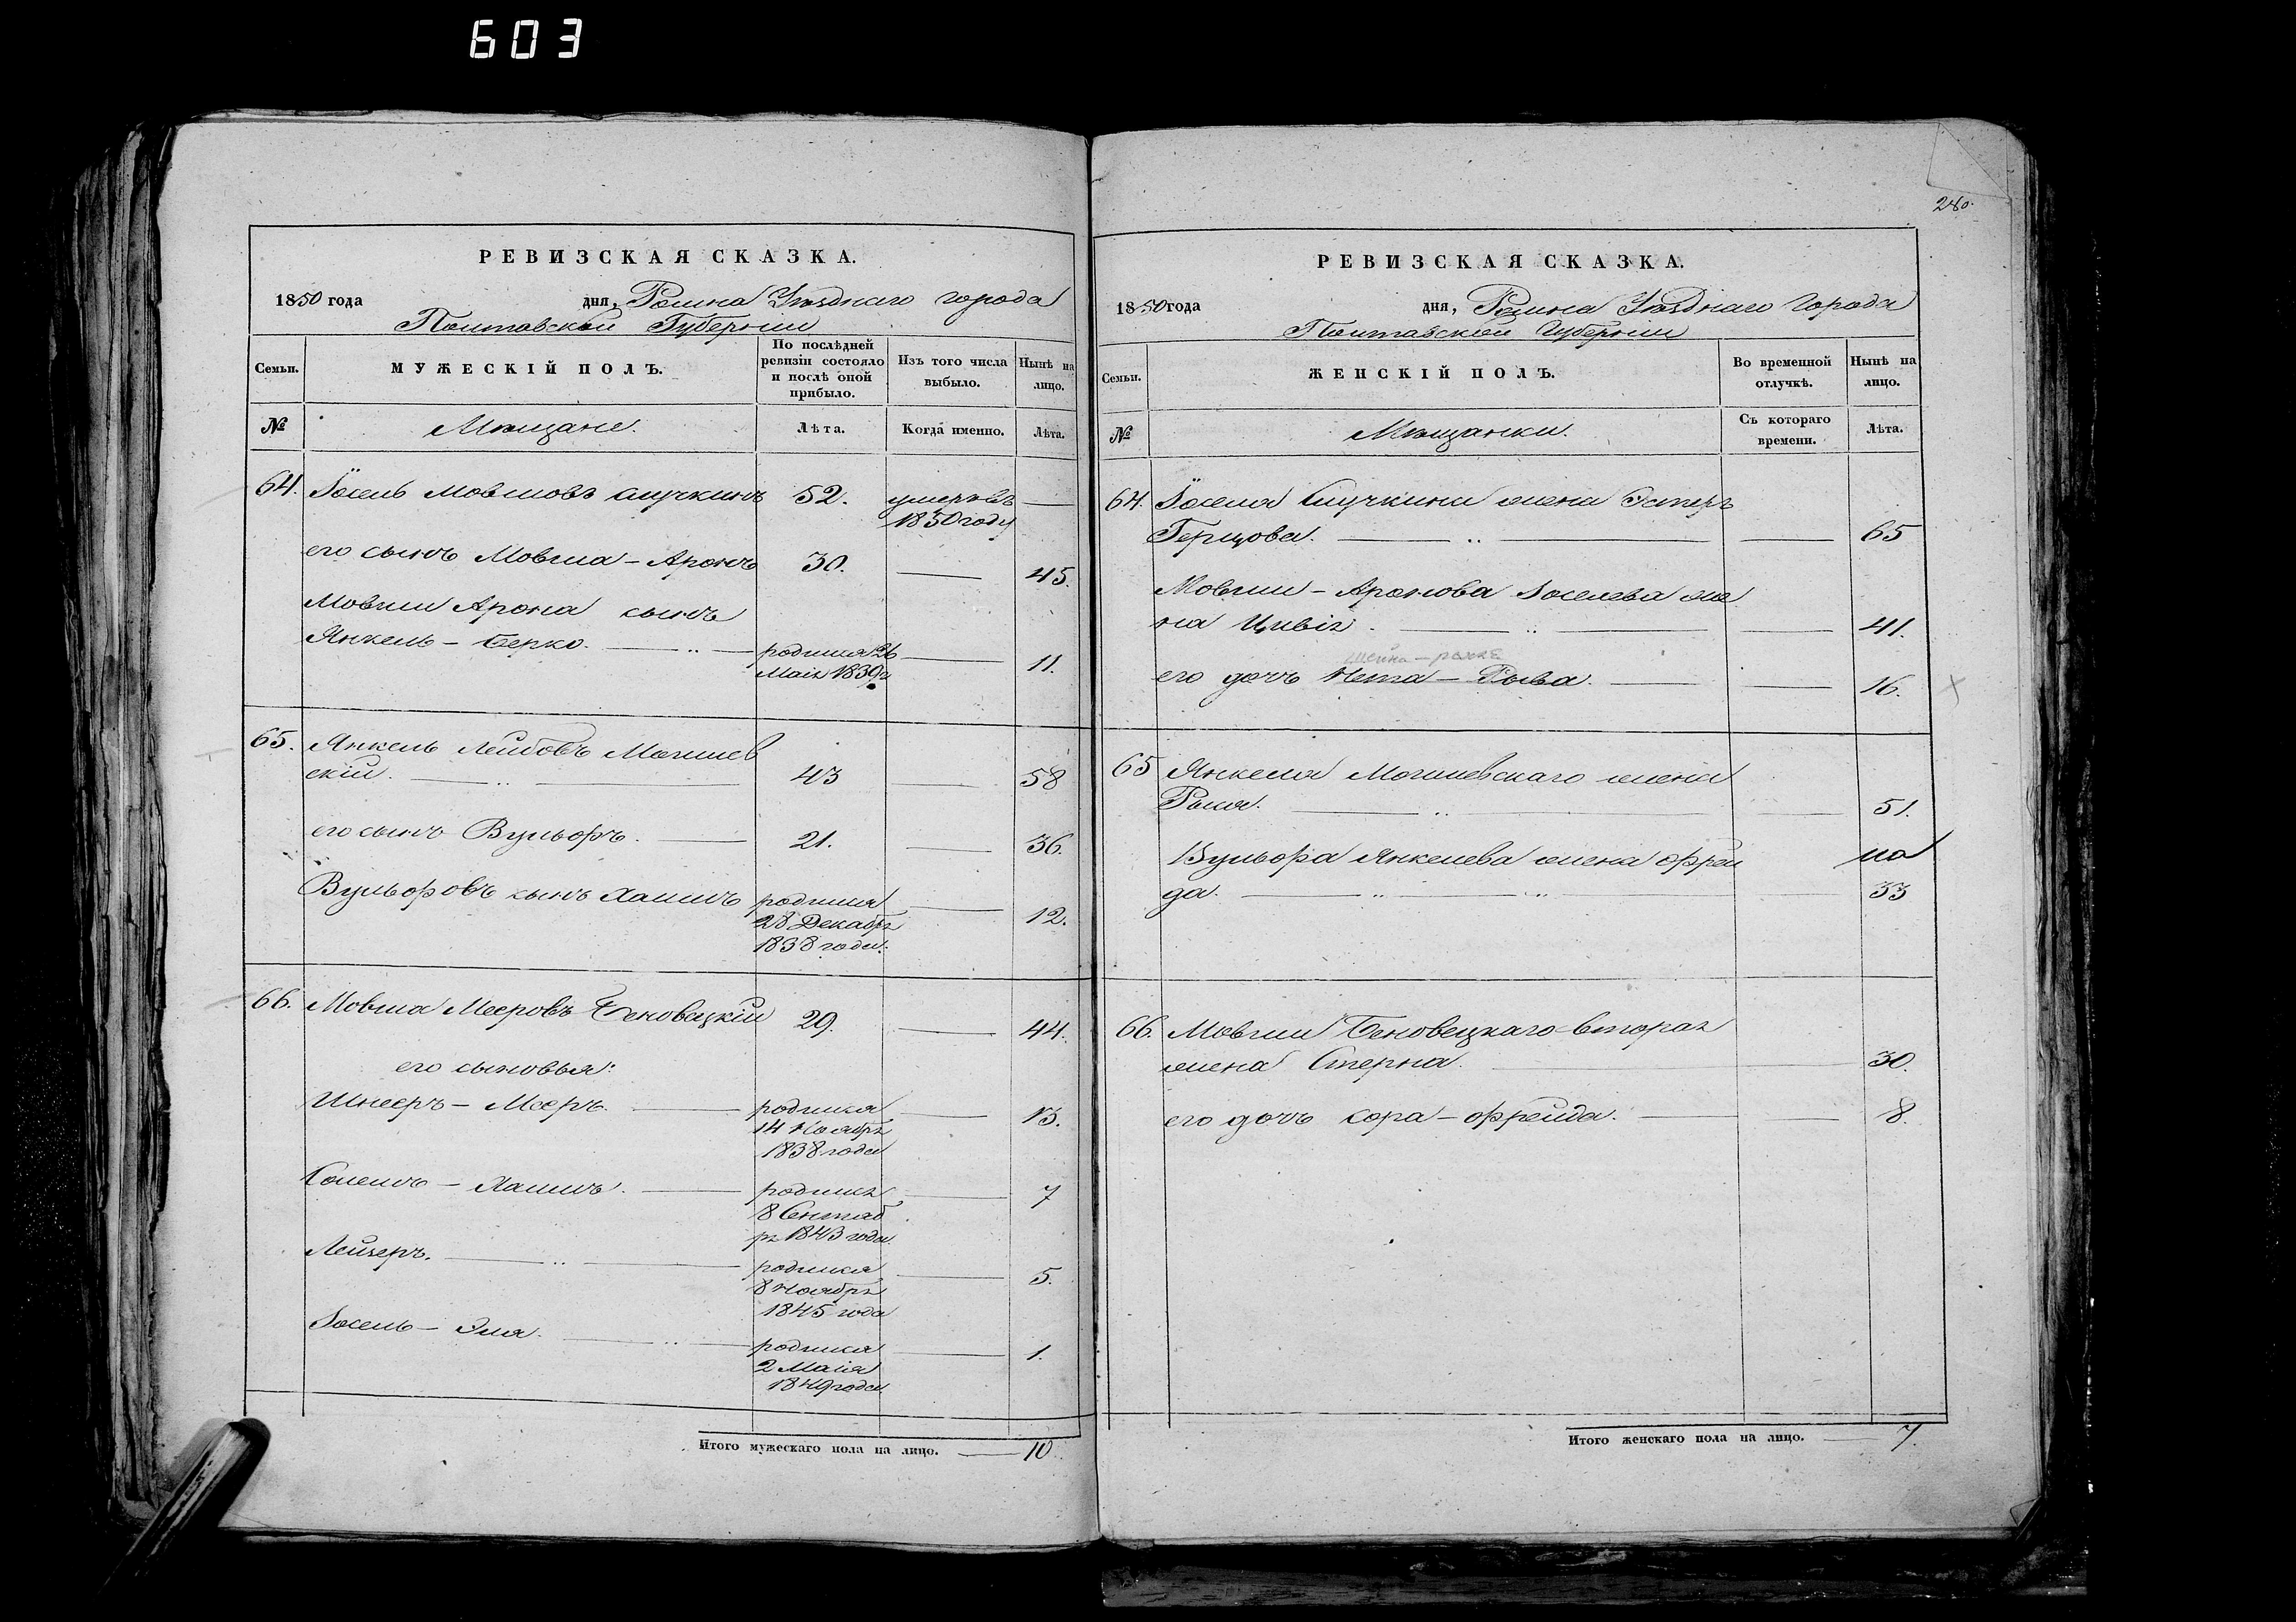 603
РЕВИЗСКАЯ СКАЗКА.
1850 года дня, Ромна Уѣзднаго города
Полтавской Губерніи
Семьи.
МУЖЕСКІЙ ПОЛЪ.
По послѣдней
ревизіи состояло
и послѣ оной
прибыло.
Изъ того числа
выбыло.
Нынѣ на
лицо.
№
Мѣщане.
Лѣта.
Когда именно.
Лѣта.
64. Іосель Мовшовъ Случкинъ 52. умерховъ —
1850 году
его сынъ Мовша - Аронъ 30. — 45.
Мовши Арона сынъ
Янкель - Берко. — родился 26 — 11.
Маія 1839 г
65. Янкель Лейбовъ Могилев
скій. — 43 — 58
его сынъ Вульфъ. — 21. — 36.
сынъ Хаимъ родился — 12.
28 Декабря
1838 года.
66. Мовша Мееровъ Беновецкій 29. — 44.
его сыновья:
Шнееръ - Мееръ. — родился — 13.
14 Ноября
1838 года
Соломъ - Хаимъ. — родился — 7
8 Сентяб
ря 1843 года
Лейзеръ. — родился — 5.
8 Ноября
1845 года
Іосель - Эля. — родился — 1.
2 Маія
1849 года
Итого мужескаго пола на лицо. — 10.
280.
РЕВИЗСКАЯ СКАЗКА.
1850 года дня, Ромна Уѣзднаго города
Полтавской Губерніи
Семьи.
ЖЕНСКІЙ ПОЛЪ.
Во временной
отлучкѣ.
Нынѣ на
лицо.
№
Мѣщанки.
Съ котораго
времени.
Лѣта.
64. Іоселя Случкина жена Эстеръ
Герцова. — — 65
Мовши - Аронова Іоселева же
на Цивія. — — 41.
шейна -
его дочь Нета - Рыва. — — 16.
65 Янкеля Могилевскаго жена
— — 51.
Янкелева жена Фрей
да. — — 33
66. Мовши Беновецкаго вторая
жена Стерна. — — 30.
его дочь Сора - Фрейда. — — 8.
Итого женскаго пола на лицо. — 7.